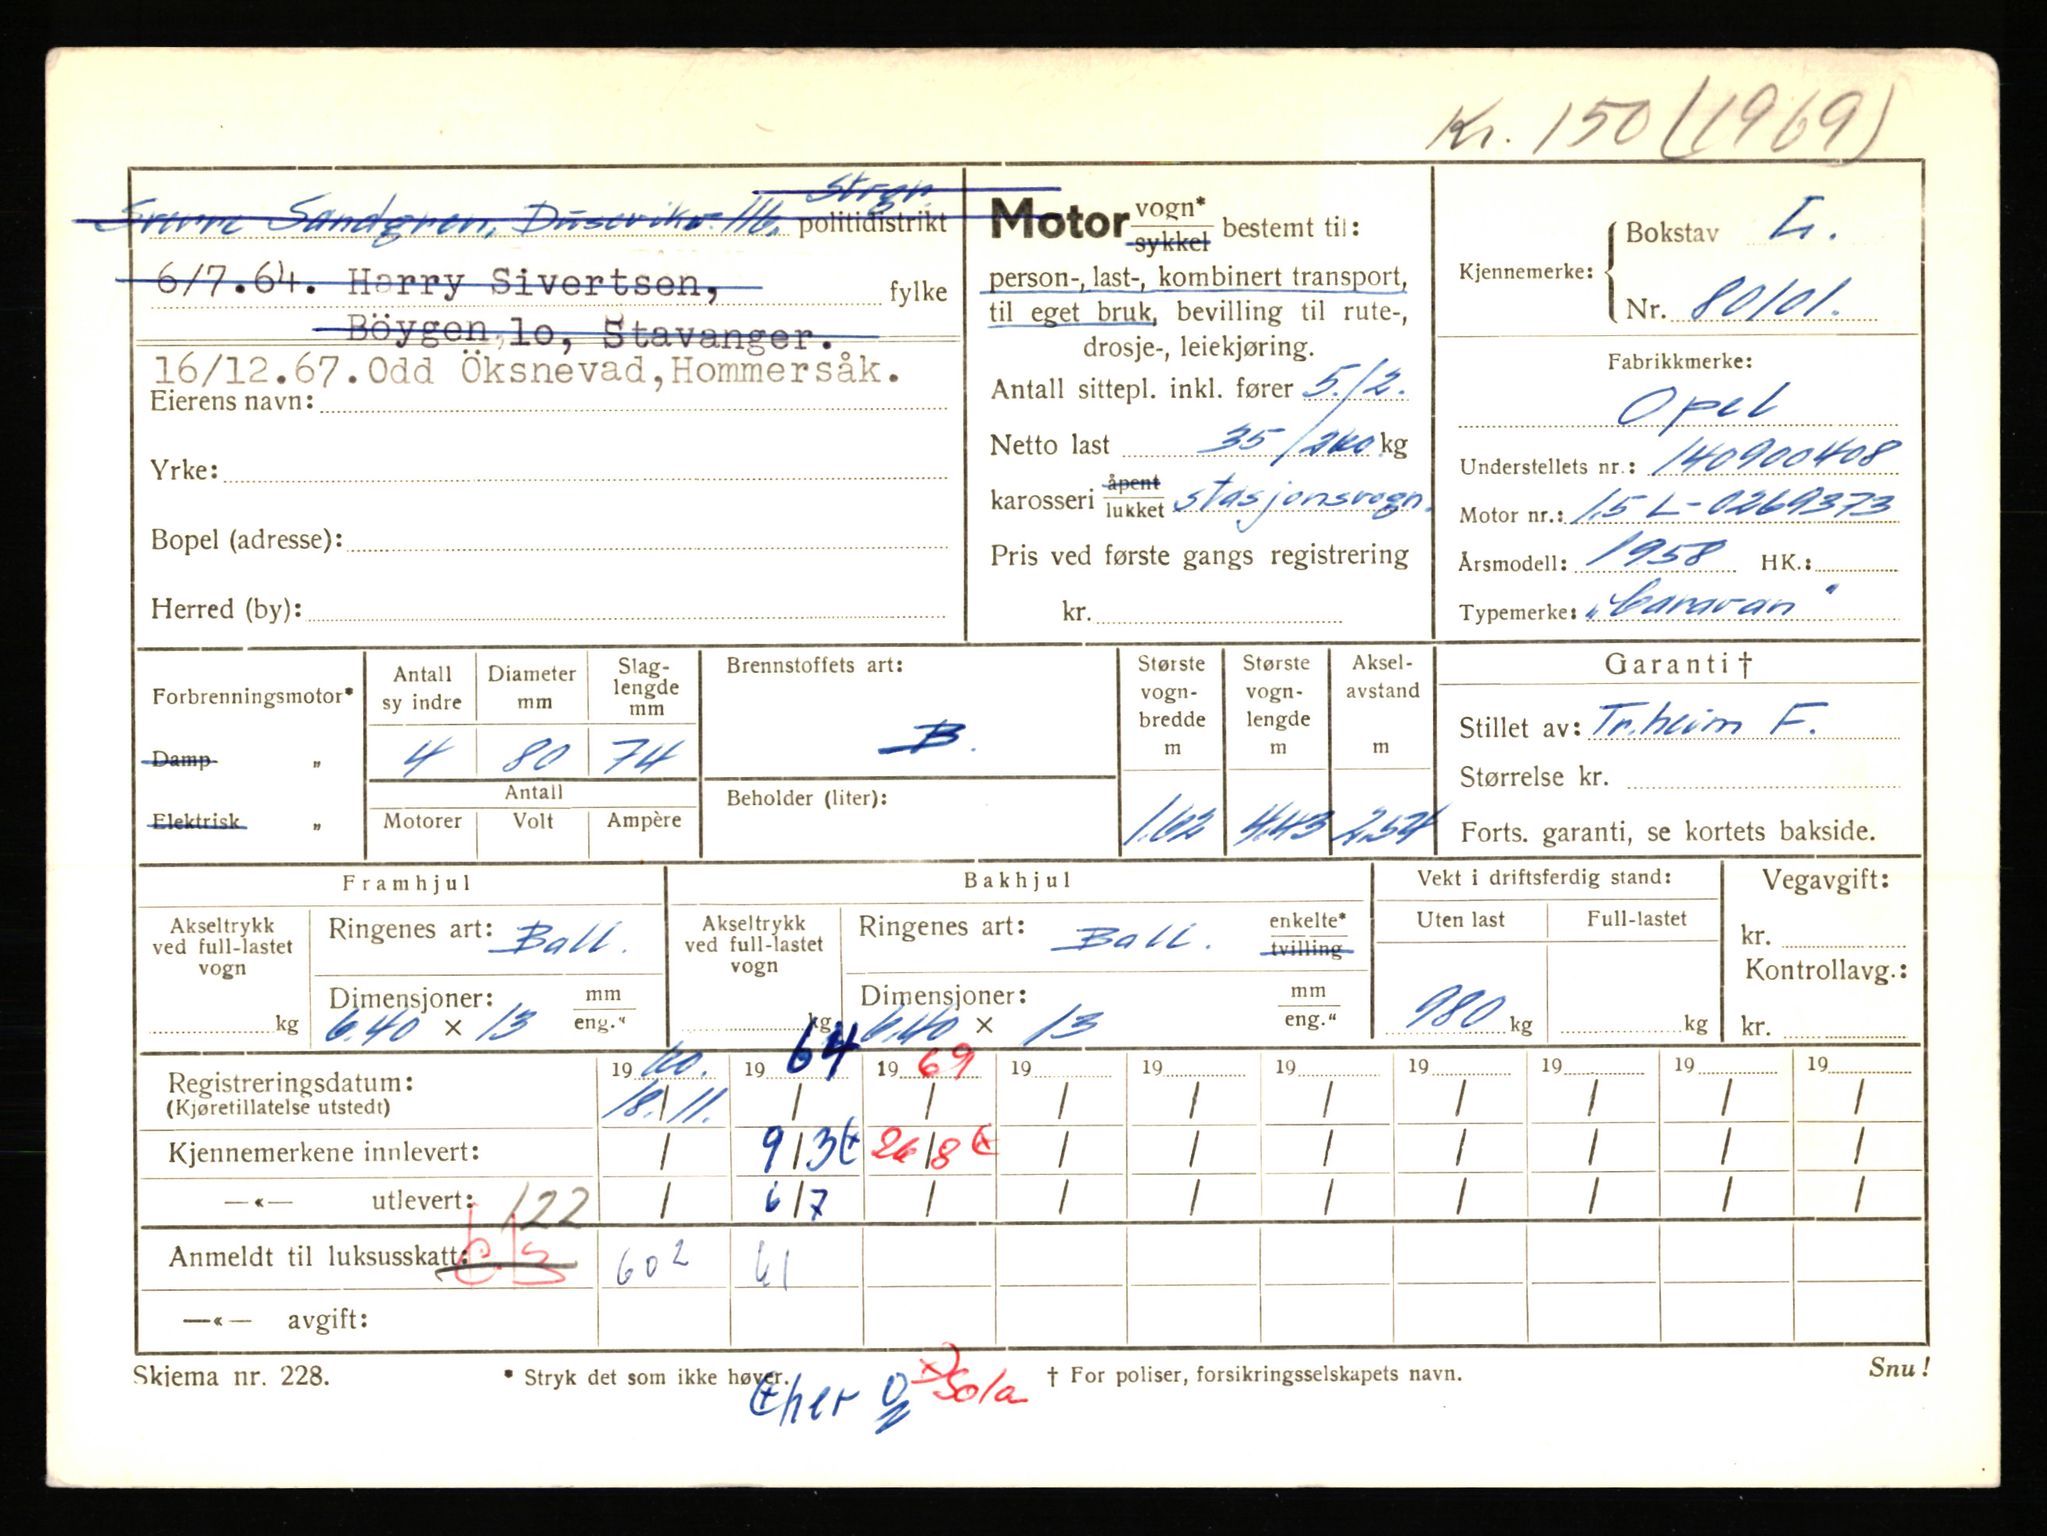 Kr. 150 (1969)
Strgr.
Sverre Sandgren, politidistrikt
6/7.64. Harry Sivertsen, fylke
Böygen 10, Stavanger.
16/12.67. Odd Öksnevad, Hommersåk.
Eierens navn:
Yrke:
Bopel (adresse):
Herred (by):
Motor vogn* / sykkel bestemt til:
person-, last-, kombinert transport,
til eget bruk, bevilling til rute-,
drosje-, leiekjøring.
Antall sittepl. inkl. fører 5/2.
Netto last 35/240 kg
karosseri åpent / lukket stasjonsvogn.
Pris ved første gangs registrering
kr.
Kjennemerke: Bokstav L.
Nr. 80101.
Fabrikkmerke:
Opel
Understellets nr.: 140900408
Motor nr.: 1.5 L-0269373
Årsmodell: 1958 HK.:
Typemerke: „Caravan"
Forbrenningsmotor*
Damp „
Elektrisk „
Antall sy indre 4
Diameter mm 80
Slag- lengde mm 74
Antall
Motorer Volt Ampère
Brennstoffets art:
B.
Beholder (liter):
Største vogn- bredde m 1.62
Største vogn- lengde m 4.43
Aksel- avstand m 2.54
Garanti †
Stillet av: Tr.heim F.
Størrelse kr.
Forts. garanti, se kortets bakside.
Framhjul
Akseltrykk ved full-lastet vogn kg
Ringenes art: Ball.
Dimensjoner: mm / eng."
6.40 × 13
Bakhjul
Akseltrykk ved full-lastet vogn kg
Ringenes art: Ball. enkelte* / tvilling
Dimensjoner: mm / eng."
6.40 × 13
Vekt i driftsferdig stand:
Uten last Full-lastet
980 kg kg
Vegavgift:
kr.
Kontrollavg.:
kr.
Registreringsdatum: 1960. 1964 1969 19 19 19 19 19 19 19
(Kjøretillatelse utstedt) 18/11. / / / / / / / / /
Kjennemerkene innlevert: / 9/3 26/8 / / / / / / /
—«— utlevert: 122 / 6/7 / / / / / / / /
Anmeldt til luksusskatt: 602 61
—«— avgift:
Skjema nr. 228. * Stryk det som ikke høver. † For poliser, forsikringsselskapets navn. Snu!
x) Sola